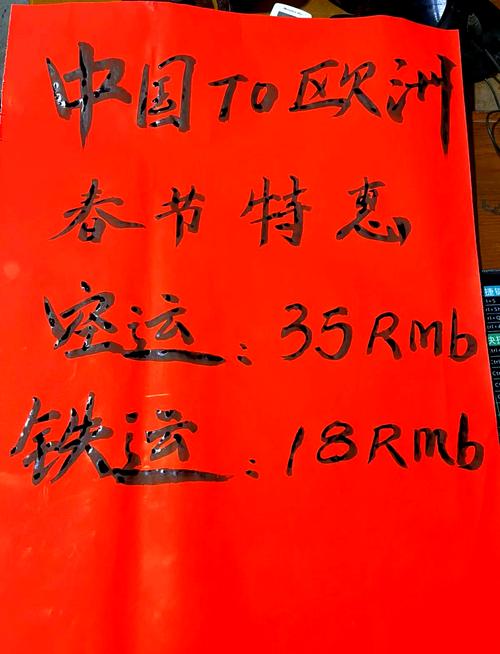 中国 TO 欧洲
春节特惠
空运：35Rmb
铁运：18Rmb